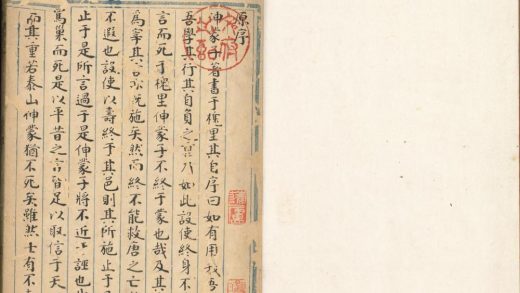 原序
伸蒙子著書于槐里其自序曰如有用我吾
吾學其行其自負之如此設使終身不
言而死于槐里伸蒙子不終于蒙也哉及其
為宰其言既施矣然而終不能救唐之亡
不遐也設使以壽終于其邑則其所施止于
止于是所言過于是伸蒙子將不近于誣也
罵巢而死是以平昔之言皆足以取信于天
而其重若泰山伸蒙猶不死矣雖然士有不